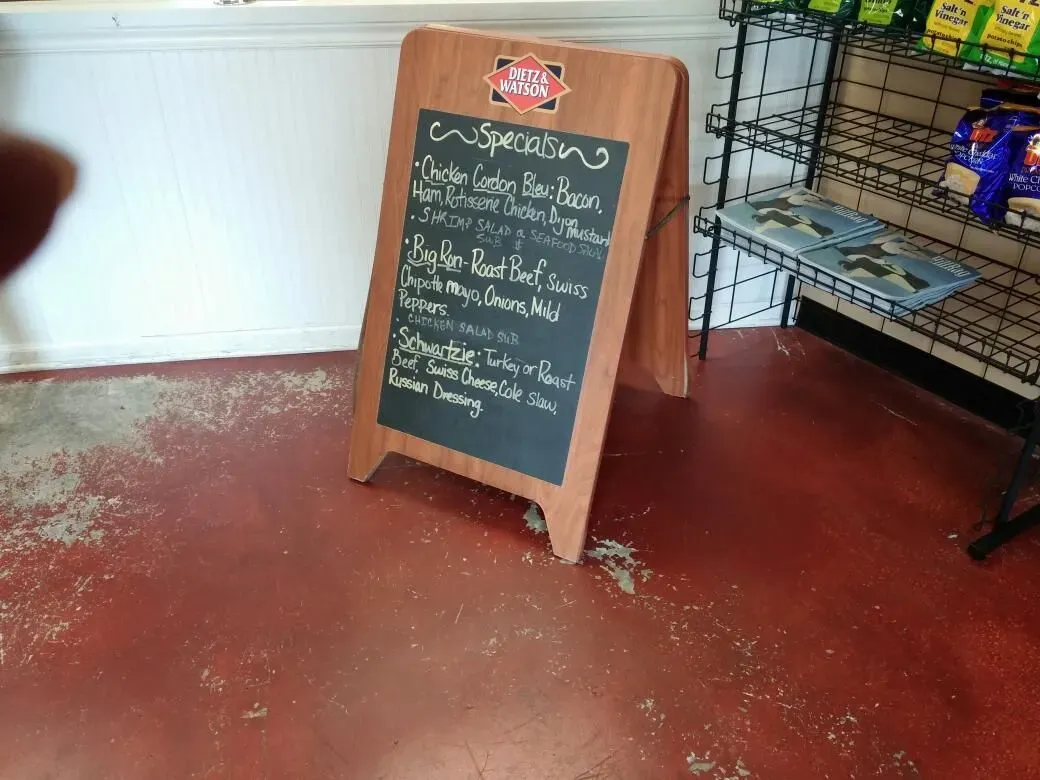 DIETZ &
WATSON
Specials
• Chicken Cordon Bleu: Bacon,
Ham, Rotisserie Chicken, Dijon mustard
• SHRIMP SALAD & SEAFOOD SALAD
SUB $
• Big Ron - Roast Beef, Swiss
Chipotle mayo, Onions, Mild
Peppers.
• CHICKEN SALAD SUB
• Schwartzie: Turkey or Roast
Beef, Swiss Cheese, Cole Slaw,
Russian Dressing.
Salt 'n
Vinegar
potato chips
Salt 'n
Vinegar
potato chips
UTZ
White Cheddar
UTZ
White Ch
POPCO